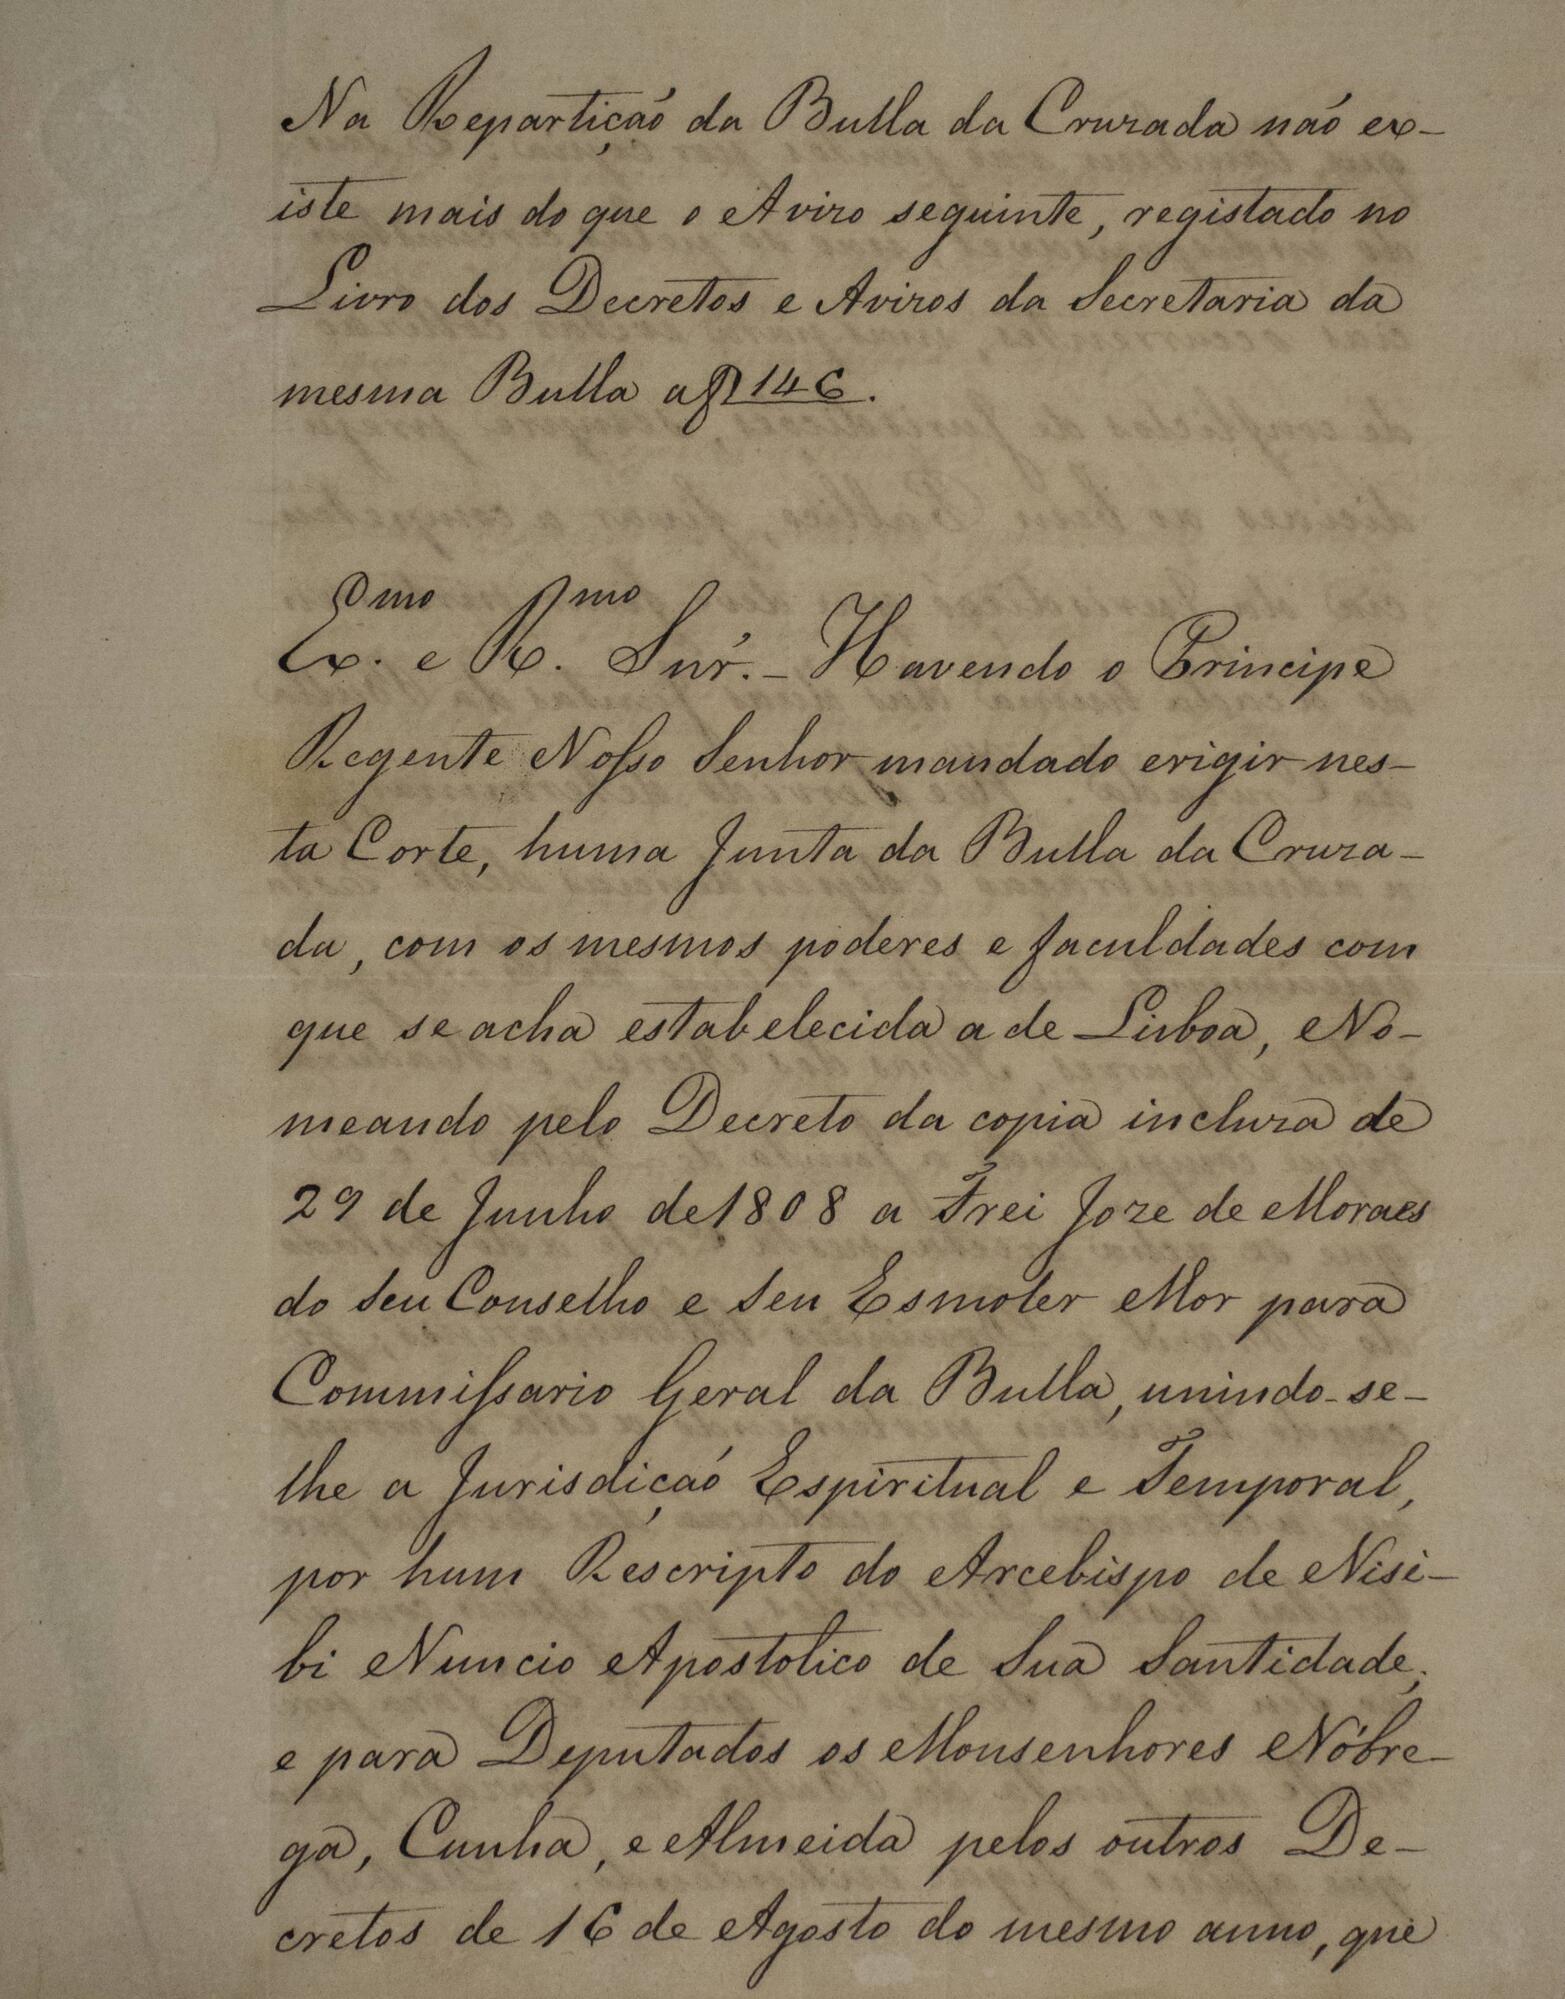 Na Repartição da Bulla da Cruzada não ex-
iste mais do que o Avizo seguinte, registado no
Livro dos Decretos e Avizos da Secretaria da
mesma Bulla a f 146.
Ex.mo e R.mo Snr̃. - Havendo o Principe
Regente Nosso Senhor mandado erigir nes-
ta Corte, huma Junta da Bulla da Cruza-
da, com os mesmos poderes e faculdades com
que se acha estabelecida a de Lisboa, e No-
meando pelo Decreto da copia incluza de
29 de Junho de 1808 a Frei Joze de Moraes
do Seu Conselho e Seu Esmoler Mor para
Commissario Geral da Bulla, unindo-se-
lhe a Jurisdição Espiritual e Temporal,
por hum Rescripto do Arcebispo de Nisi-
bi Nuncio Apostolico de Sua Santidade;
e para Deputados os Monsenhores Nóbre-
ga, Cunha, e Almeida pelos outros De-
cretos de 16 de Agosto do mesmo anno, que